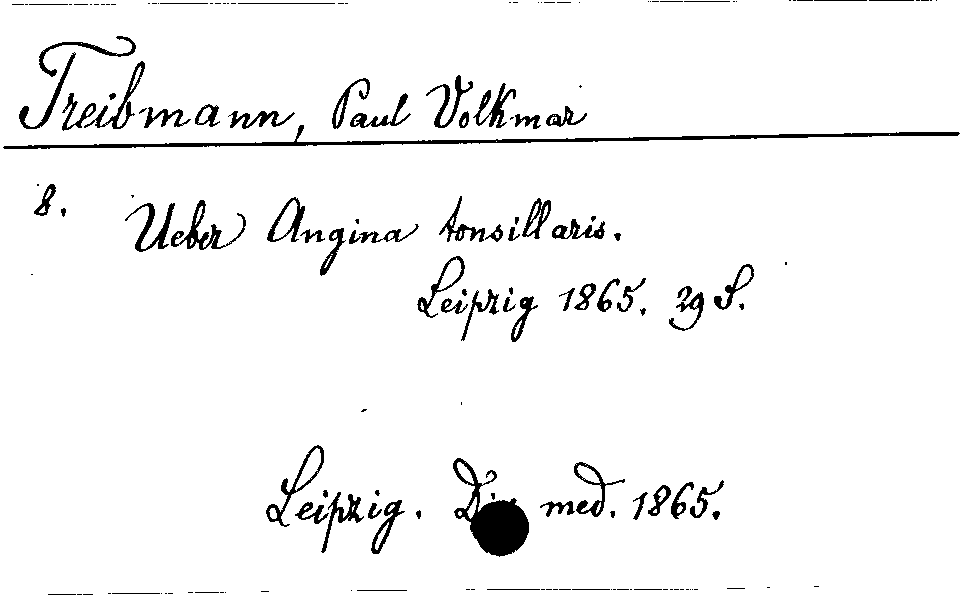 Treibmann, Paul Volkmar
8. Ueber Angina tonsillaris.
Leipzig 1865. 29 S.
Leipzig. med. 1865.